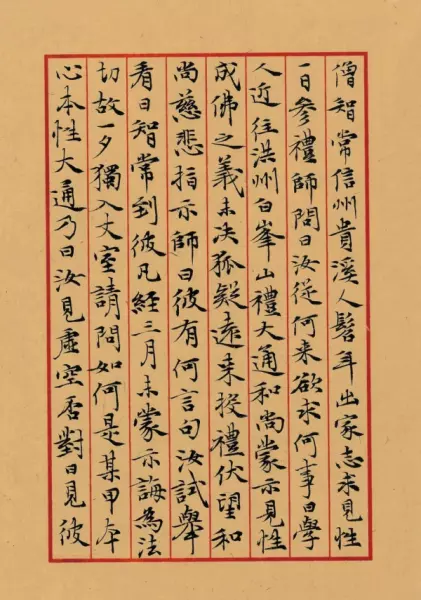 僧智常信州貴溪人髫年出家志求見性
一日參禮師問曰汝從何来欲求何事曰學
人近往洪州白峯山禮大通和尚蒙示見性
成佛之義未决狐疑遠来投禮伏望和
尚慈悲指示師曰彼有何言句汝試舉
看曰智常到彼凡經三月未蒙示誨為法
切故一夕獨入丈室請問如何是某甲本
心本性大通乃曰汝見虛空否對曰見彼